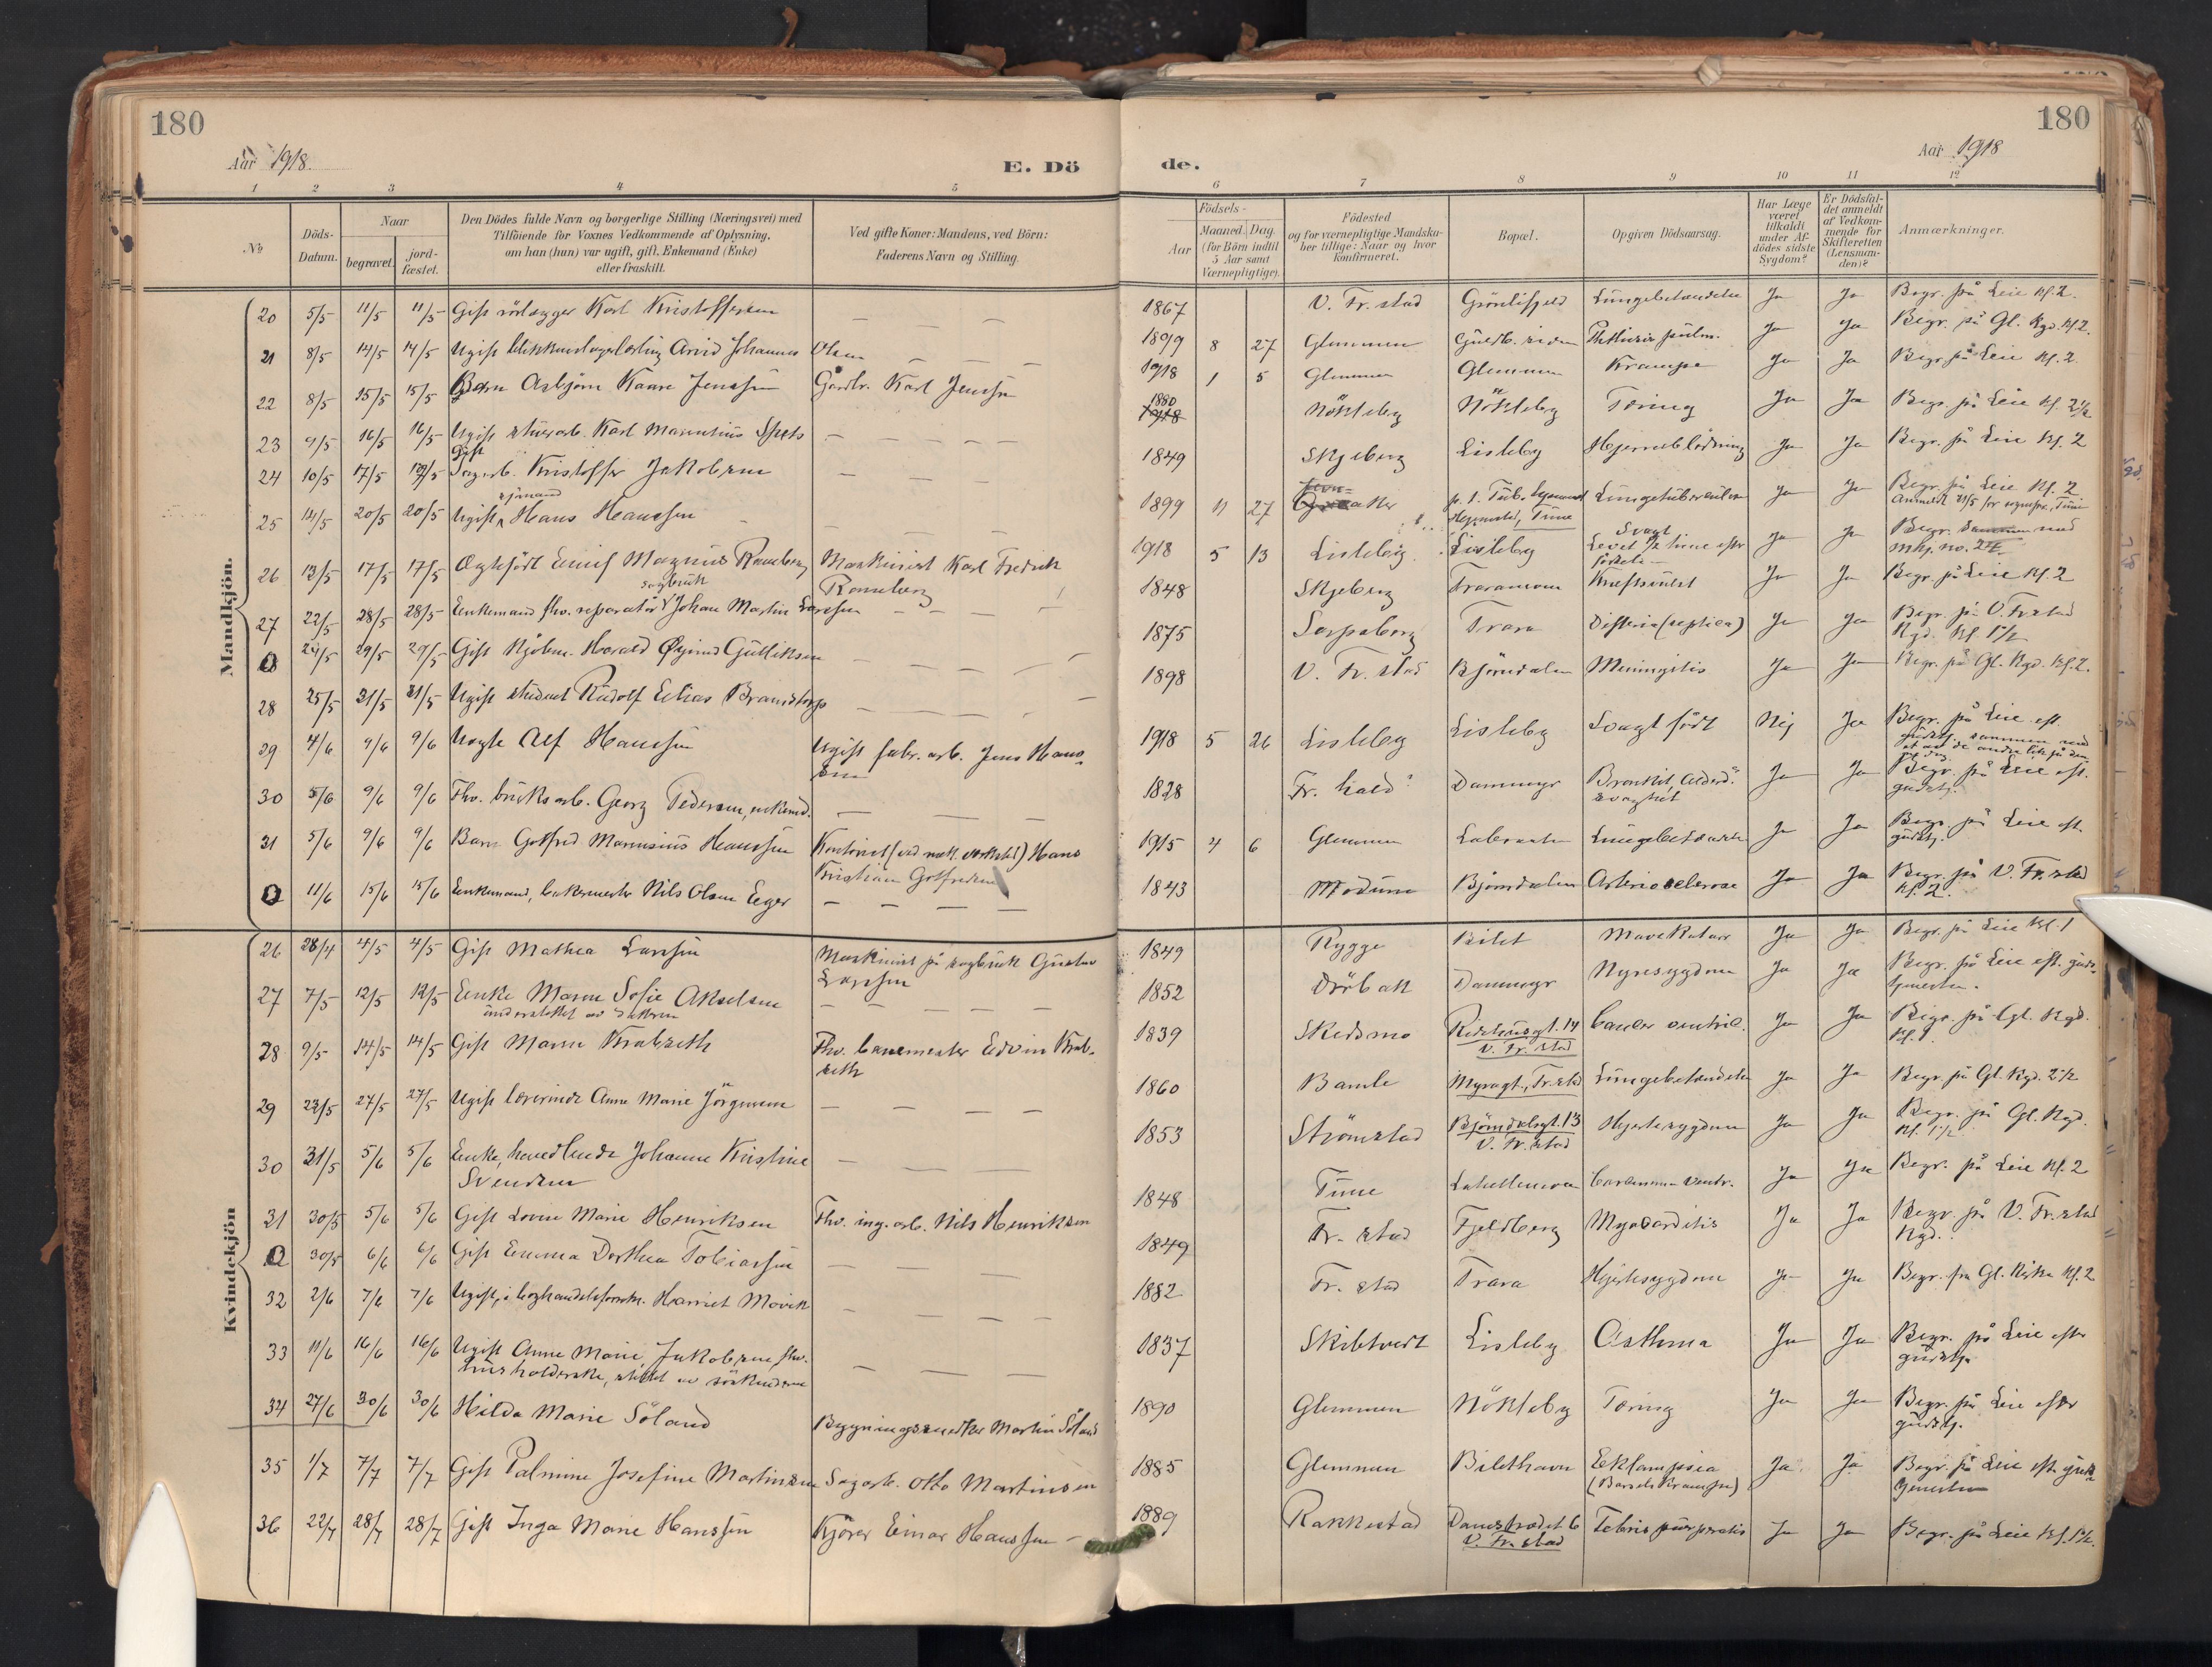 180
Aar 1918.
E. Dö
1 2 3 4 5
No
Döds-Datum.
Naar
begravet.
jord-fæstet.
Den Dödes fulde Navn og borgerlige Stilling (Næringsvei) med
Tilföiende for Voxnes Vedkommende af Oplysning,
om han (hun) var ugift, gift, Enkemand (Enke)
eller fraskilt.
Ved gifte Koner: Mandens, ved Börn:
Faderens Navn og Stilling.
Mandkjön.
20 5/5 11/5 11/5 Gift rörlægger Karl Kristoffersen
21 8/5 14/5 14/5 Ugift blikkenslagerlærling Arvid Johannes Olsen
22 8/5 15/5 15/5 Barn Asbjörn Kaare Jenssen Gårdbr. Karl Jenssen
23 9/5 16/5 16/5 Ugift stuerarb. Karl Marentius
Gift
24 10/5 17/5 Sagarb. Kristoffer Jakobsen
sjömand
25 14/5 20/5 20/5 Ugift Hans Hanssen
26 13/5 17/5 17/5 Ægtefödt Magnus Ramberg Maskinist Karl Fredrik
Ramberg
sagbruk
27 22/5 28/5 28/5 Enkemand fhv. reparatör Johan Martin Larssen
0 24/5 29/5 29/5 Gift Kjöbm. Harald Øyvind Gulliksen
28 25/5 31/5 31/5 Ugift student Rudolf Elias Brandtorp
29 4/6 9/6 9/6 Uægte Alf Hanssen Ugift fabr. arb. Jens Hans-
sen
30 5/6 9/6 9/6 Fhv. bruksarb. Georg Pedersen, enkemd.
31 5/6 9/6 9/6 Barn Gotfred Marensius Hanssen Kontorist (ved mek. verksted) Hans
Kristian Gotfredsen
0 11/6 15/6 15/6 Enkemand, bakermester Nils Olsen Eeger
Kvindekjön
26 28/4 4/5 4/5 Gift Mathea Larssen Maskinist på sagbruk Gustav
Larssen
27 7/5 12/5 12/5 Enke Maren Sofie Akselsen
understöttet av datteren
28 9/5 14/5 14/5 Gift Maren Krabseth Fhv. banemester Edvin Krab-
seth
29 23/5 27/5 27/5 Ugift lærerinde Anne Marie Jörgensen
30 31/5 5/6 5/6 Enke, Johanne Kristine
Svendsen
31 30/5 5/6 5/6 Gift Lovise Marie Henriksen Fhv. ing. arb. Nils Henriksen
0 30/5 6/6 6/6 Gift Emma Dorthea Tobiassen
32 2/6 7/6 7/6 Ugift, Harriet Movik
33 11/6 16/6 16/6 Ugift Anne Marie Jakobsen fhv.
husholderske, støttet av söskendene
34 27/6 30/6 30/6 Hilda Marie Söland Bygningssnedker Martin Söland
35 1/7 7/7 7/7 Gift Palmine Josefine Martinsen Sagarb. Otto Martinsen
36 22/7 28/7 28/7 Gift Inga Marie Hanssen Kjörer Einar Hanssen
180
de.
Aar 1918
6 7 8 9 10 11 12
Födsels-
Aar
Maaned. Dag.
(for Börn indtil
5 Aar samt
Værnepligtige).
Födested
og for værnepligtige Mandska-
ber tillige: Naar og hvor
konfirmeret.
Bopæl.
Opgiven Dödsaarsag.
Har Læge
været
tilkaldt
under Af-
dödes sidste
Sygdom?
Er Dödsfal-
det anmeldt
af Vedkom-
mende for
Skifteretten
(Lensman-
den)?
Anmærkninger.
1867 V. Fr. stad Grönlifjeld Lungebetændelse Ja Ja Begr. på Leie Kl. 2.
1899 8 27 Glemmen Phthisis pulm. Ja Ja Begr. på Gl. Kgd. Kl. 2.
1918 1 5 Glemmen Glemmen Krampe Ja Ja Begr. på Leie Kl. 2
1880
1918 Nökleby Nökleby Tæring Ja Ja Begr. på Leie Kl. 2½
1849 Skjeberg Lisleby Hjerneblödning Ja Ja Begr. på Leie Kl. 2
1899 11 27 Lungetuberculose Ja Ja Begr. på Leie Kl. 2
Tune
1918 5 13 Lisleby Lisleby Svagt
Levet ½ time efter
födselen Ja Ja Begr. sammen med
mkj. no. 24.
1848 Skjeberg Traramoen Kræftsvulst Ja Ja Begr. på Leie Kl. 2
1875 Sarpsborg Trara Difteri (septica) Ja Ja Begr. på V. Fr. stad
Kgd. Kl. 1½
1898 V. Fr. stad Bjørndalen Meningitis Ja Ja Begr. på Gl. Kgd. Kl. 2.
1918 5 26 Lisleby Lisleby Svagt födt Nej Ja Begr. på Leie eft.
gudstj. sammen med
1828 Fr. hald Dammyr Bronkit, Alderd.
svaghet Ja Ja Begr. på Leie eft.
gudstj.
1915 4 6 Glemmen Lungebetændelse Ja Ja Begr. på Leie eft.
gudstj.
1843 Modum Bjørndalen Arteriosclerose Ja Ja Begr. på V. Fr. stad
Kl. 2.
1849 Rygge Bilet Mavekatarr Ja Ja Begr. på Leie Kl. 1
1852 Dröbak Dammyr Nyresygdom Ja Ja Begr. på Leie eft. guds-
tjenesten.
1839 Skedsmo Ridehusgt. 14
V. Fr. stad Cancer ventric. Ja Ja Begr. på Gl. Kgd.
Kl. 1.
1860 Bamle Myragt., Fr. stad Lungebetændelse Ja Ja Begr. på Gl. Kgd. 2½
1853 Strömstad Björndalsgt. 13
V. Fr. stad Hjertesygdom Ja Ja Begr. på Gl. Kgd.
Kl. 1½
1848 Tune Carcinoma ventr. Ja Ja Begr. på Leie Kl. 2
1849 Fr. stad Fjeldberg Myocarditis Ja Ja Begr. på V. Fr. stad
Kgd.
1882 Fr. stad Trara Hjertesygdom Ja Ja Begr. fra Gl. Kirke Kl. 2
1837 Skibtvedt Lisleby Asthma Ja Ja Begr. på Leie efter
gudstj.
1890 Glemmen Nökleby Tæring Ja Ja Begr. på Leie efter
gudstj.
1885 Glemmen Bilethavn Eklampsia
(Barselskrampe) Ja Ja Begr. på Leie eft. guds-
tjenesten
1889 Rakkestad Damstrædet 6
V. Fr. stad Febris puerperalis Ja Ja Begr. på Leie Kl. 1½.